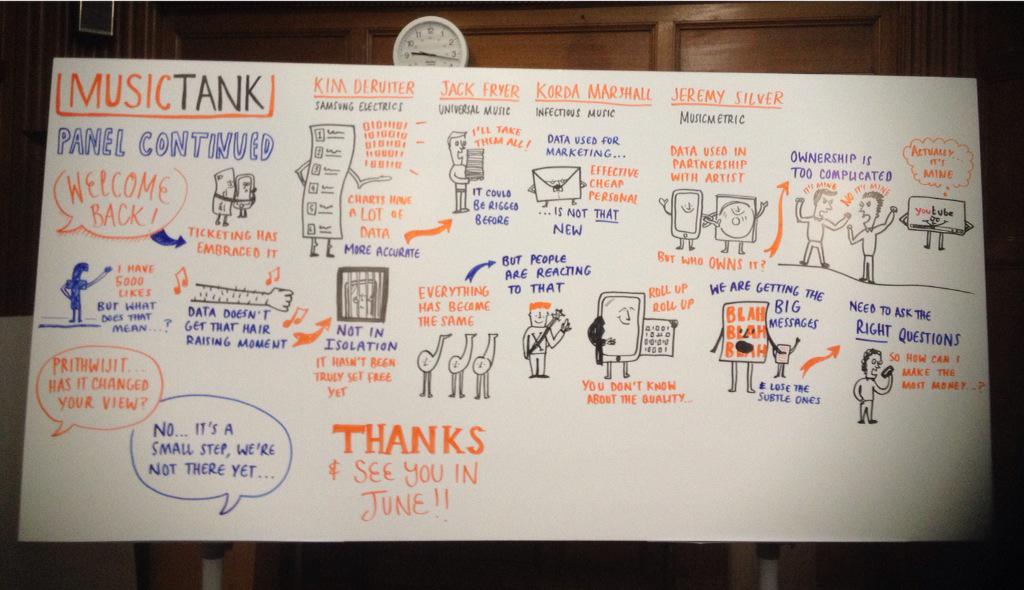 MUSICTANK
PANEL CONTINUED
WELCOME
BACK!
TICKETING HAS
EMBRACED IT
I HAVE
5000
LIKES
BUT WHAT
DOES THAT
MEAN...?
DATA DOESN'T
GET THAT HAIR
RAISING MOMENT
PRITHWIJIT...
HAS IT CHANGED
YOUR VIEW?
NO... IT'S A
SMALL STEP, WE'RE
NOT THERE YET...
KIM DERUITER
SAMSUNG ELECTRICS
CHARTS HAVE
A LOT OF
DATA
MORE ACCURATE
NOT IN
ISOLATION
IT HASN'T BEEN
TRULY SET FREE
YET
THANKS
& SEE YOU IN
JUNE!!
JACK FRYER
UNIVERSAL MUSIC
I'LL TAKE
THEM ALL!
IT COULD
BE RIGGED
BEFORE
EVERYTHING
HAS BECOME
THE SAME
KORDA MARSHALL
INFECTIOUS MUSIC
DATA USED FOR
MARKETING...
EFFECTIVE
CHEAP
PERSONAL
...IS NOT THAT
NEW
BUT PEOPLE
ARE REACTING
TO THAT
ROLL UP
ROLL UP
YOU DON'T KNOW
ABOUT THE QUALITY...
JEREMY SILVER
MUSICMETRIC
DATA USED IN
PARTNERSHIP
WITH ARTIST
BUT WHO OWNS IT?
OWNERSHIP IS
TOO COMPLICATED
IT'S MINE
NO IT'S MINE
ACTUALLY...
IT'S
MINE
youtube
WE ARE GETTING THE
BIG
MESSAGES
BLAH
BLAH
BLAH
& LOSE THE
SUBTLE ONES
NEED TO ASK THE
RIGHT QUESTIONS
SO HOW CAN I
MAKE THE
MOST MONEY...?